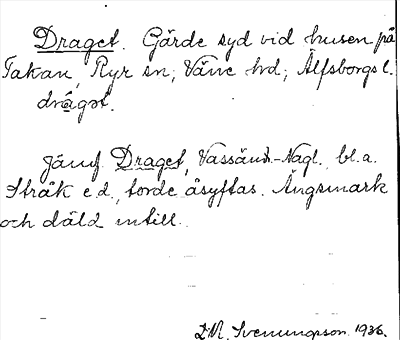 Draget. Gärde syd vid husen på
Takan, Ryr sn; Väne hd; Älfsborgs l.
drágət.
Jämf Draget, Vassända-Nagl. bl.a.
Stråk e.d., torde åsyftas. Ängsmark
och däld intill.
D.N. Svenungsson 1936.